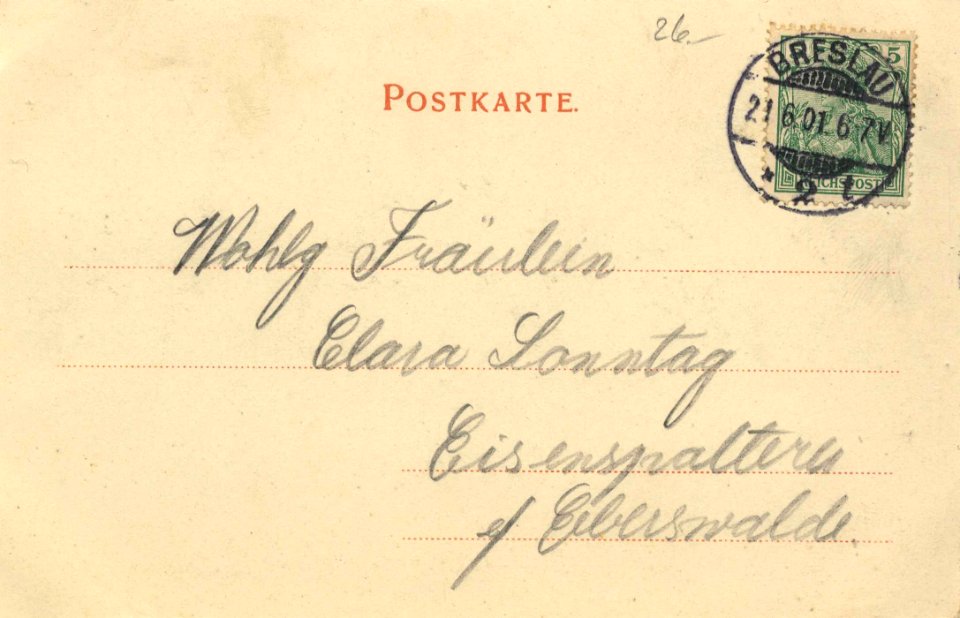 26.-
POSTKARTE.
5
BRESLAU
21.6.01.6-7V.
* 2 t
REICHSPOST
Wohlg Fräulein
Clara Sonntag
Eisenspalterei
b/ Eberswalde.